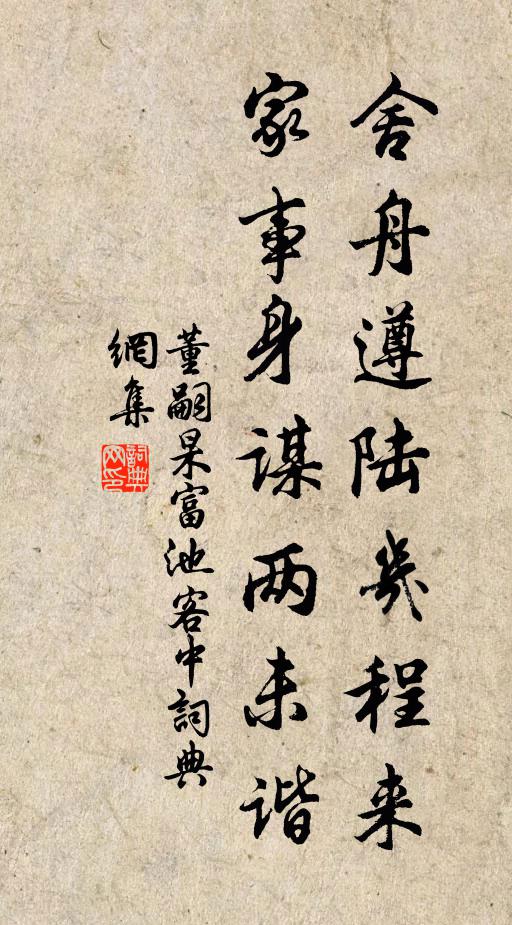 舍舟遵陆幾程来
家事身谋两未谐
董嗣杲富池客中詞典
網集
詞典
网印